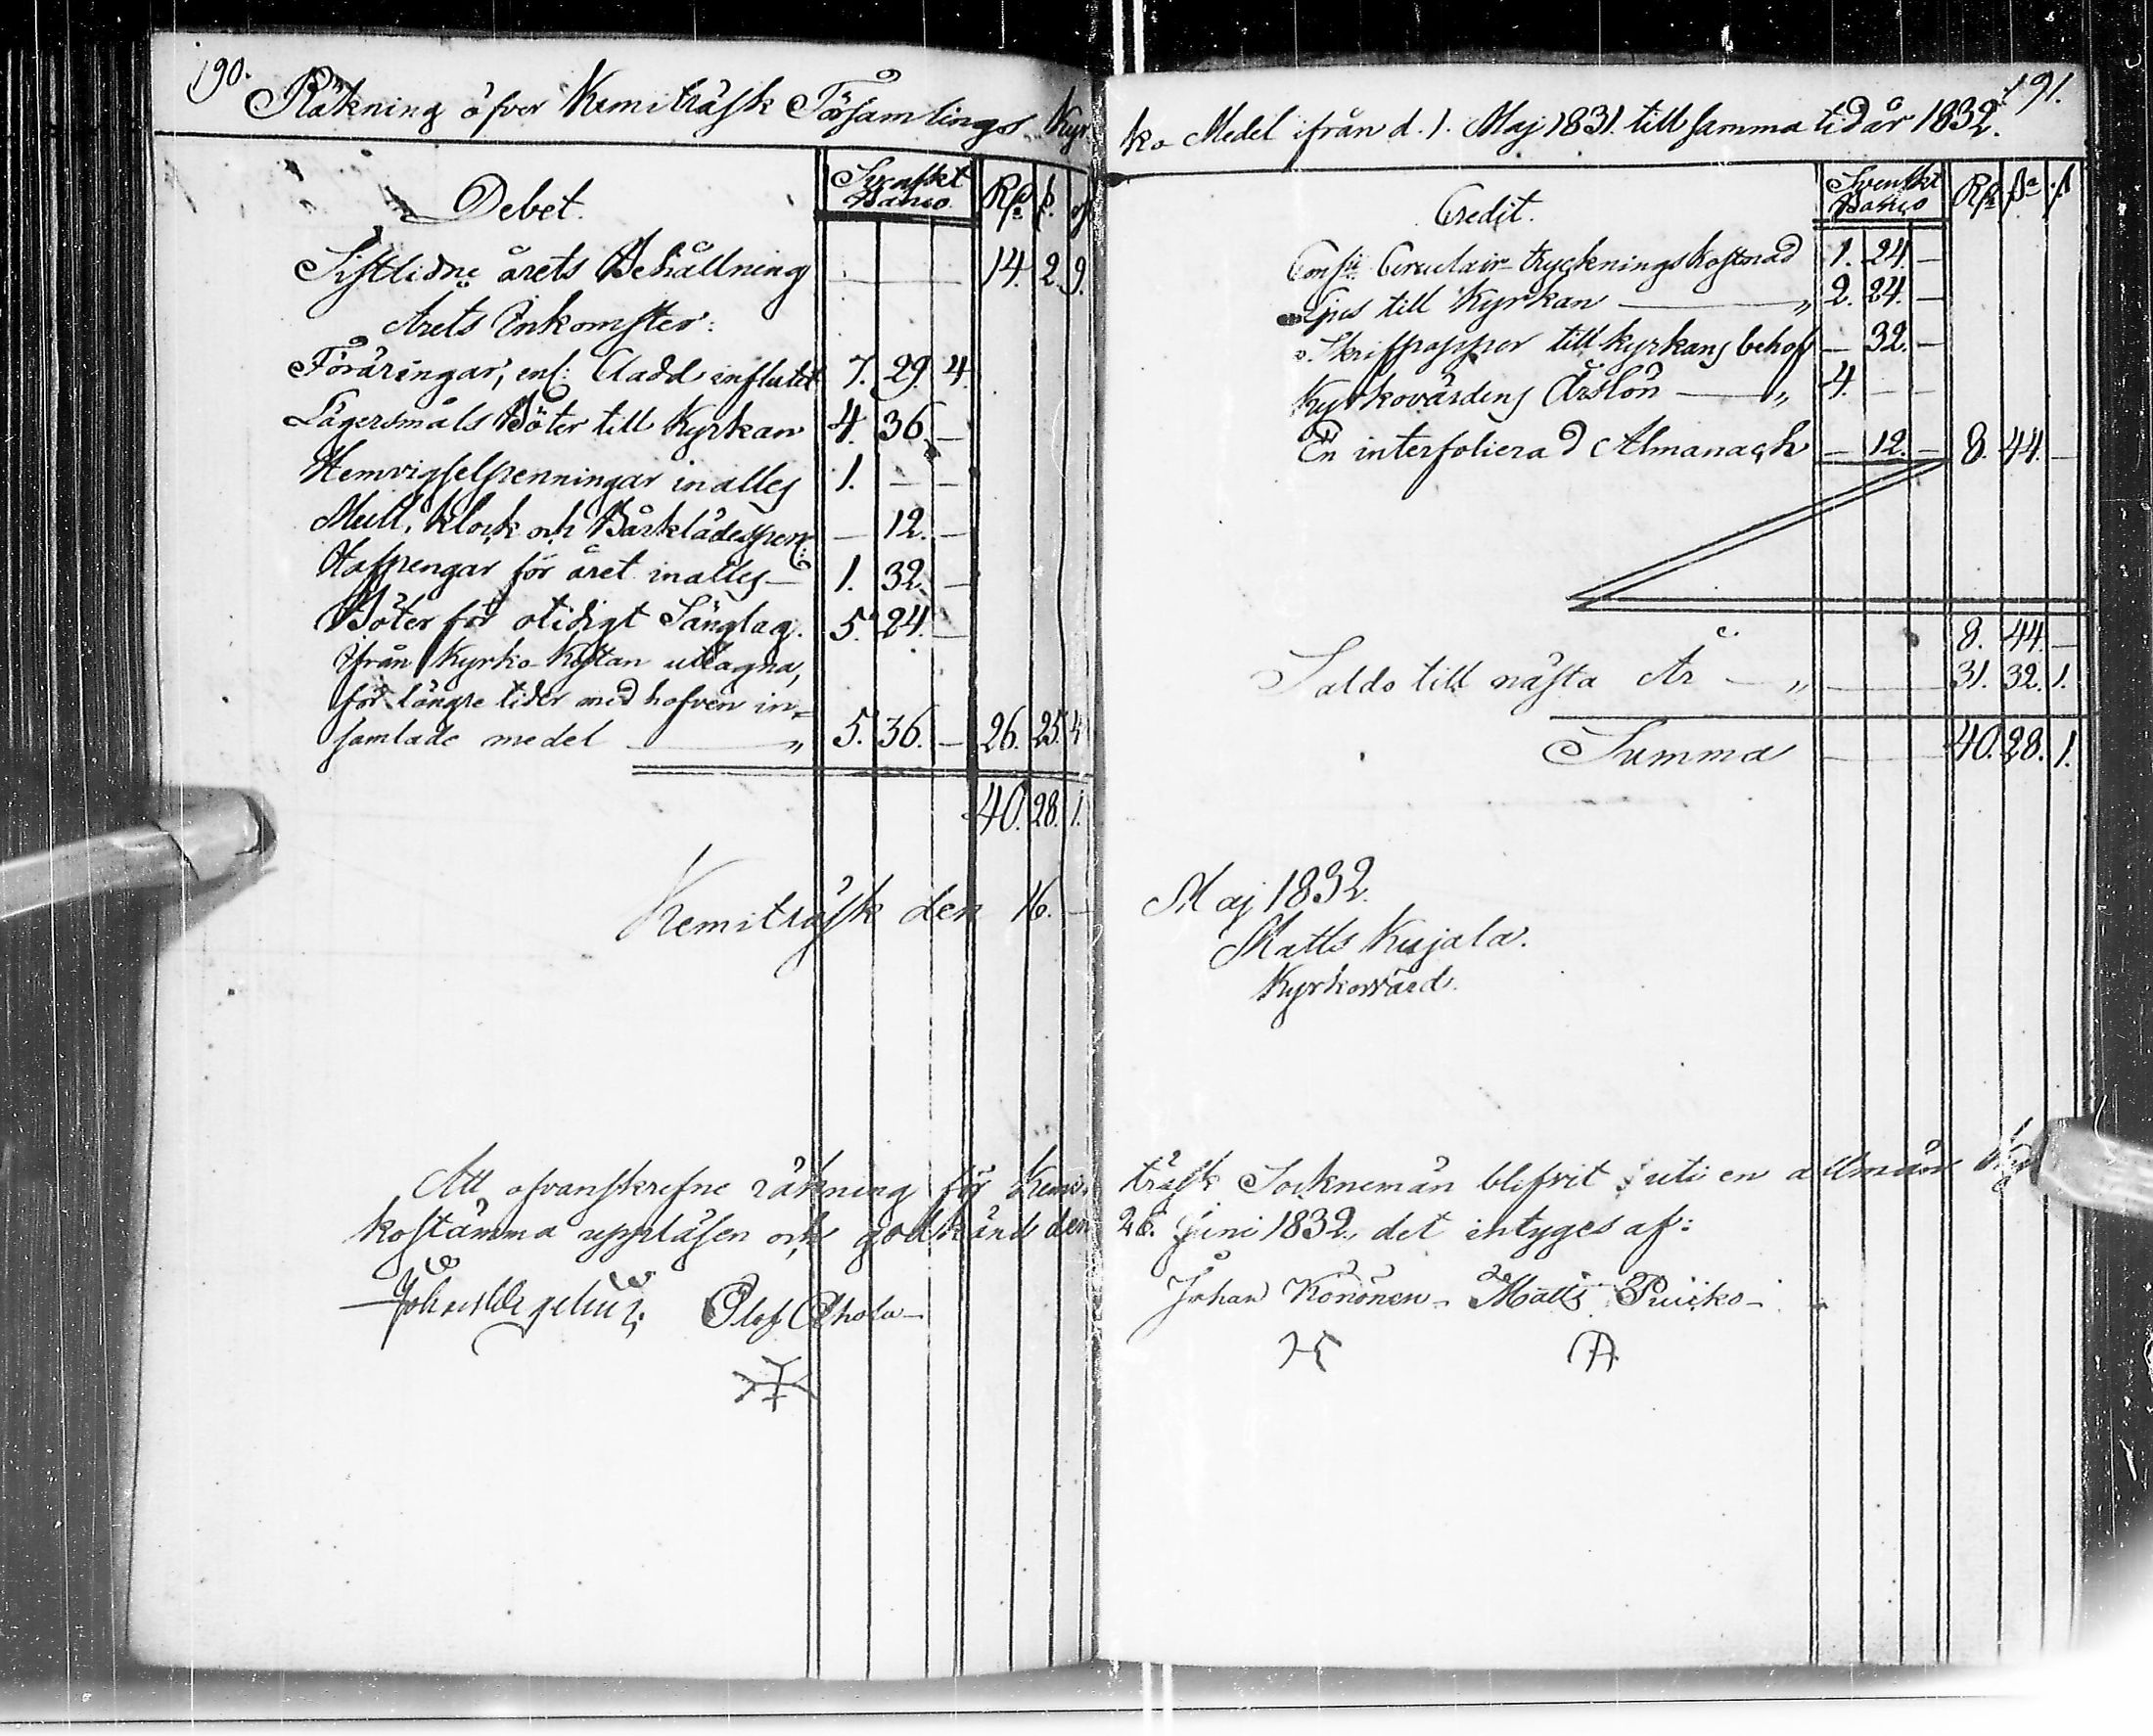 190.
Räkning öfver Kemiträsk Församlings Kyr-
Debet. Svenskt Banco Rd. s. rf
Sistlidne årets Behållning — 14. 2. 9.
Årets Inkomster:
Föräringar, enl: Cladd influtit 7. 29. 4.
Lägersmåls Böter till Kyrkan 4. 36. —
Hemvigselpenningar inalles 1. — —
Mull, klock och Bårklädespen: — 12. —
Hafpengar för året inalles — 1. 32. —
Böter för otidigt Sänglag. 5. 24. —
Ifrån Kyrko-Kistan uttagna,
för längre tider med hofven in=
samlade medel — „ 5. 36. — 26. 25. 4
40. 28. 1.
Kemiträsk den 16. —
Att ofvanskrefne räkning för Kemi-
kostämma uppläsen och godkänd den
Olof Ahola —
191.
ko Medel ifrån d. 1. Maj 1831. till samma tid år 1832.
Credit. Svenskt Banco Rd. s. rf
Consti: Circulair-tryckningskostnad 1. 24. —
Ljus till Kyrkan — „ 2. 24. —
Skrifpapper till kyrkans behof — 32. —
Kyrkovärdens Årslön — „ 4. — —
En interfolierad Almanach — 12. — 8. 44. —
8. 44. —
Saldo till nästa År — „ — 31. 32. 1.
Summa — 40. 28. 1.
Maj 1832.
Matts Kujala.
Kyrkovärd.
träsk Socknemän blifvit uti en allmän
26. Juni 1832, det intyges af:
Johan Könönen — Matts Puicko —